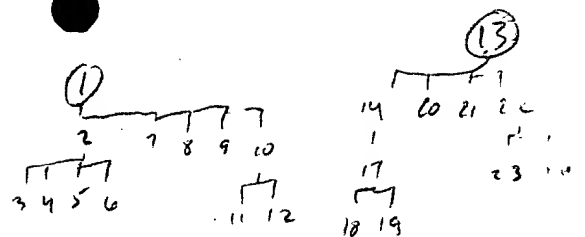 1
2 7 8 9 10
3 4 5 6
11 12
13
14 20 21
17 23
18 19